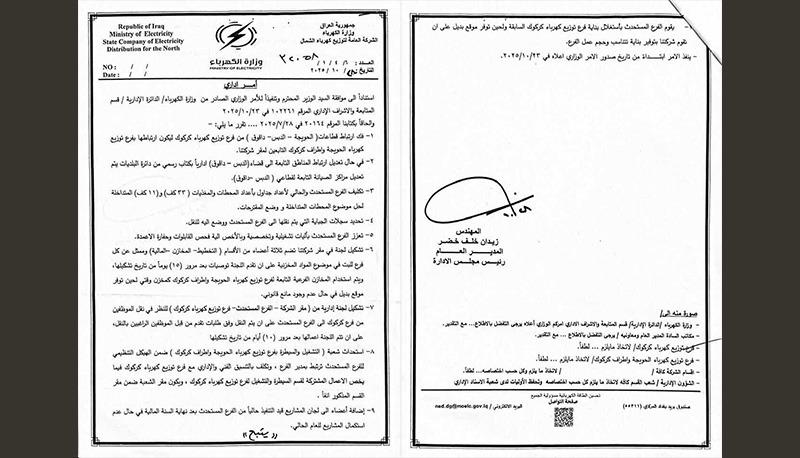 جمهورية العراق
وزارة الكهرباء
الشركة العامة لتوزيع كهرباء الشمال
وزارة الكهرباء
MINISTRY OF ELECTRICITY
Republic of Iraq
Ministry of Electricity
State Company of Electricity
Distribution for the North
NO : /
Date : / /
العدد : ١/٤/٦
٢٠٢٥/١٠/ التاريخ
أمر اداري
استناداً الى موافقة السيد الوزير المحترم وتنفيذاً للأمر الوزاري الصادر من وزارة الكهرباء/ الدائرة الإدارية / قسم
المتابعة والاشراف الإداري المرقم ١٠٢٢٦١ في ٢٠٢٥/١٠/٢٣
والحاقاً بكتابنا المرقم ٢٠١٦٤ في ٢٠٢٥/٧/٢٨ .... تقرر ما يلي: –
١- فك ارتباط قطاعات( الحويجة – الدبس- داقوق ) من فرع توزيع كهرباء كركوك ليكون ارتباطها بفرع توزيع
كهرباء الحويجة واطراف كركوك التابعين لمقر شركتنا.
٢- في حال تعديل ارتباط المناطق التابعة الى قضاء(الدبس – داقوق) ادارياً بكتاب رسمي من دائرة البلديات يتم
تعديل مراكز الصيانة التابعة لقطاعي ( الدبس –داقوق).
٣- تكليف الفرع المستحدث والحالي لأعداد جداول بأعداد المحطات والمغذيات ( ٣٣ كف) و(١١ كف) المتداخلة
لحل موضوع المحطات المتداخلة و وضع المقترحات.
٤- تحديد سجلات الجباية التي يتم نقلها الى الفرع المستحدث ووضع الية للنقل.
٥- تعزز الفرع المستحدث بآليات تشغيلية وتخصصية وبالأخص الية فحص القابلوات وحفارة الاعمدة.
٦- تشكيل لجنة في مقر شركتنا تضم ثلاثة أعضاء من الأقسام ( التخطيط- المخازن -المالية) وممثل عن كل
فرع للبت في موضوع المواد المخزنية على ان تقدم اللجنة توصيات بعد مرور (١٥) يوماً من تاريخ تشكيلها،
ويتم استخدام المخازن الفرعية التابعة لفرع توزيع كهرباء الحويجة واطراف كركوك كمخزن وقتي لحين توفر
موقع بديل في حال عدم وجود مانع قانوني.
٧- تشكيل لجنة إدارية من ( مقر الشركة – الفرع المستحدث- فرع توزيع كهرباء كركوك) للنظر في نقل الموظفين
من فرع كركوك الى الفرع المستحدث على ان يتم النقل وفق طلبات تقدم من قبل الموظفين الراغبين بالنقل،
على ان تتم اللجنة اعمالها بعد مرور (١٠) أيام من تاريخ تشكيلها
٨- استحداث شعبة ( التشغيل والسيطرة بفرع توزيع كهرباء الحويجة واطراف كركوك ) ضمن الهيكل التنظيمي
للفرع المستحدث ترتبط بمدير الفرع ، وتكلف بالتنسيق الفني والإداري مع فرع توزيع كهرباء كركوك فيما
يخص الاعمال المشتركة لقسم السيطرة والتشغيل لفرع توزيع كهرباء كركوك ، ويكون مقر الشعبة ضمن مقر
القسم المذكور انفاً .
٩- إضافة أعضاء الى لجان المشاريع قيد التنفيذ حالياً من الفرع المستحدث بعد نهاية السنة المالية في حال عدم
استكمال المشاريع للعام الحالي.
(( يتبع ))
يقوم الفرع المستحدث بأستغلال بناية فرع توزيع كهرباء كركوك السابقة ولحين توفر موقع بديل على ان
تقوم شركتنا بتوفير بناية تتناسب وحجم عمل الفرع.
– ينفذ الامر ابتداءً من تاريخ صدور الامر الوزاري اعلاه في ٢٠٢٥/١٠/٢٣.
المهندس
زيدان خلف خضر
المدير العام
رئيس مجلس الادارة
صورة منه الى/
– وزارة الكهرباء /الدائرة الإدارية/ قسم المتابعة والاشراف الاداري امركم الوزاري أعلاه يرجى التفضل بالاطلاع... مع التقدير.
– مكاتب السادة المدير العام ومعاونيه / يرجى التفضل بالاطلاع... مع التقدير.
– فرع توزيع كهرباء كركوك/ لاتخاذ مايلزم ... لطفاً.
– فرع توزيع كهرباء الحويجة واطراف كركوك/ لاتخاذ مايلزم ... لطفاً.
– اقسام الشركة كافة / / لاتخاذ ما يلزم وكل حسب اختصاصه ...لطفاً.
– الشؤون الإدارية / شعب القسم كافة لاتخاذ ما يلزم وكل حسب اختصاصه وتحفظ الأوليات لدى شعبة الاسناد الإداري
تحسين الطاقة الكهربائية مسؤولية الجميع
صفحة التواصل
صندوق بريد بغداد المركزي / (٥٥٢١١)
البريد الالكتروني / ned.dg@moelc.gov.iq